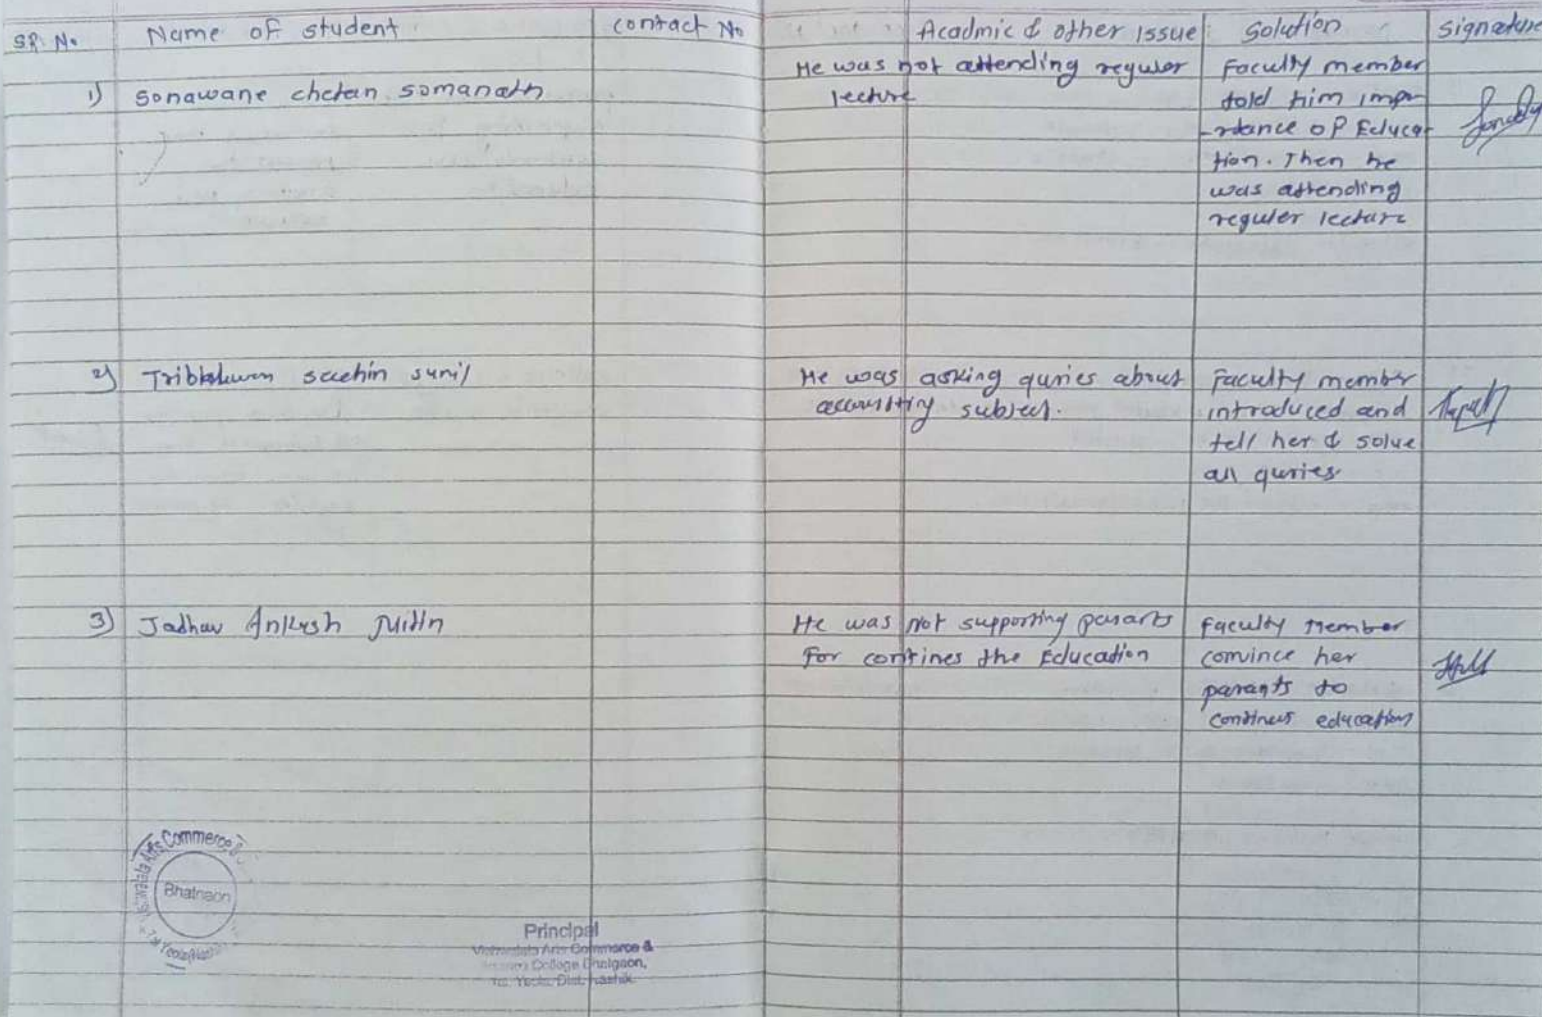 SR. No Name of student contact No Acadmic & other issue Solution Signature
1) Sonawane chetan somanath
He was not attending reguler
lecture
Faculty member
told him impo
-rtance of Educa-
tion. Then he
was attending
reguler lecture
2) Tribhuwan sachin sunil
He was asking quries about
accounting subject.
Faculty member
introduced and
tell her & solve
all quries.
3) Jadhav Ankush Nitin
He was not supporting parants
For contines the Education
Faculty Member
convince her
parants to
continus education
Arts Commerce &
Bhatgaon
Tal Yeola
Principal
Arts Commerce &
College Bhatgaon,
Tal. Yeola, Dist. Nashik